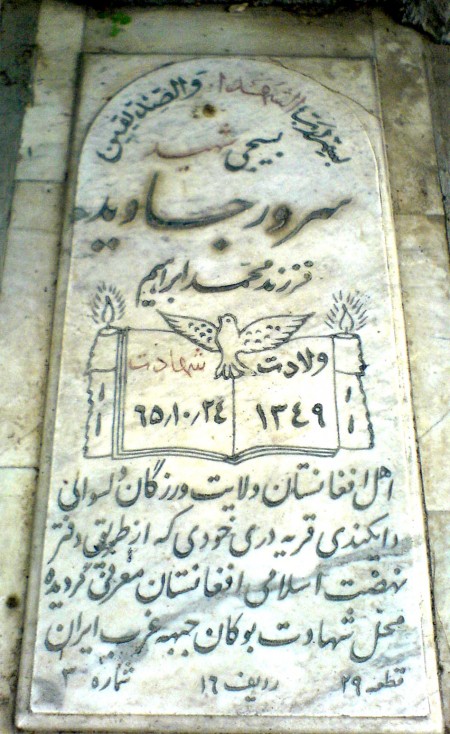 بسم رب الشهداء والصدیقین
بسیجی شهید
سرور جاوید
فرزند محمد ابراهیم
ولادت شهادت
۱۳٤۹ ٦٥٫۱۰٫۲٤
اهل افغانستان ولایت ورزگان ولسوالی
دایکندی قریه دری خودی که از طریق دفتر
نهضت اسلامی افغانستان معرفی گردیده
محل شهادت بوکان جبهه غرب ایران
قطعه ۲۹ ردیف ۱٦ شماره ۳